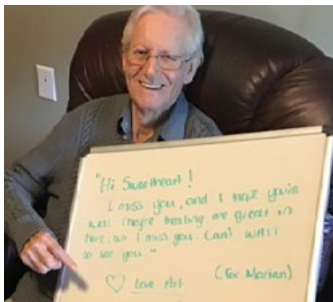 "Hi Sweetheart!
I miss you, and I hope you're
well. They're treating me great in
here, but I miss you. Can't wait
to see you."
♡ Love Art
(For Marian)